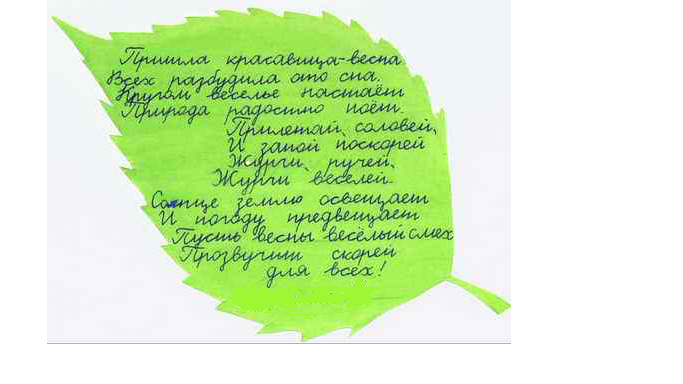 Пришла красавица-весна
Всех разбудила ото сна.
Кругом веселье настаёт
Природа радостно поёт.
Прилетай, соловей,
И запой поскорей
Журчи, ручей,
Журчи веселей.
Солнце землю освещает
И погоду предвещает
Пусть весны весёлый смех
Прозвучит скорей
для всех!